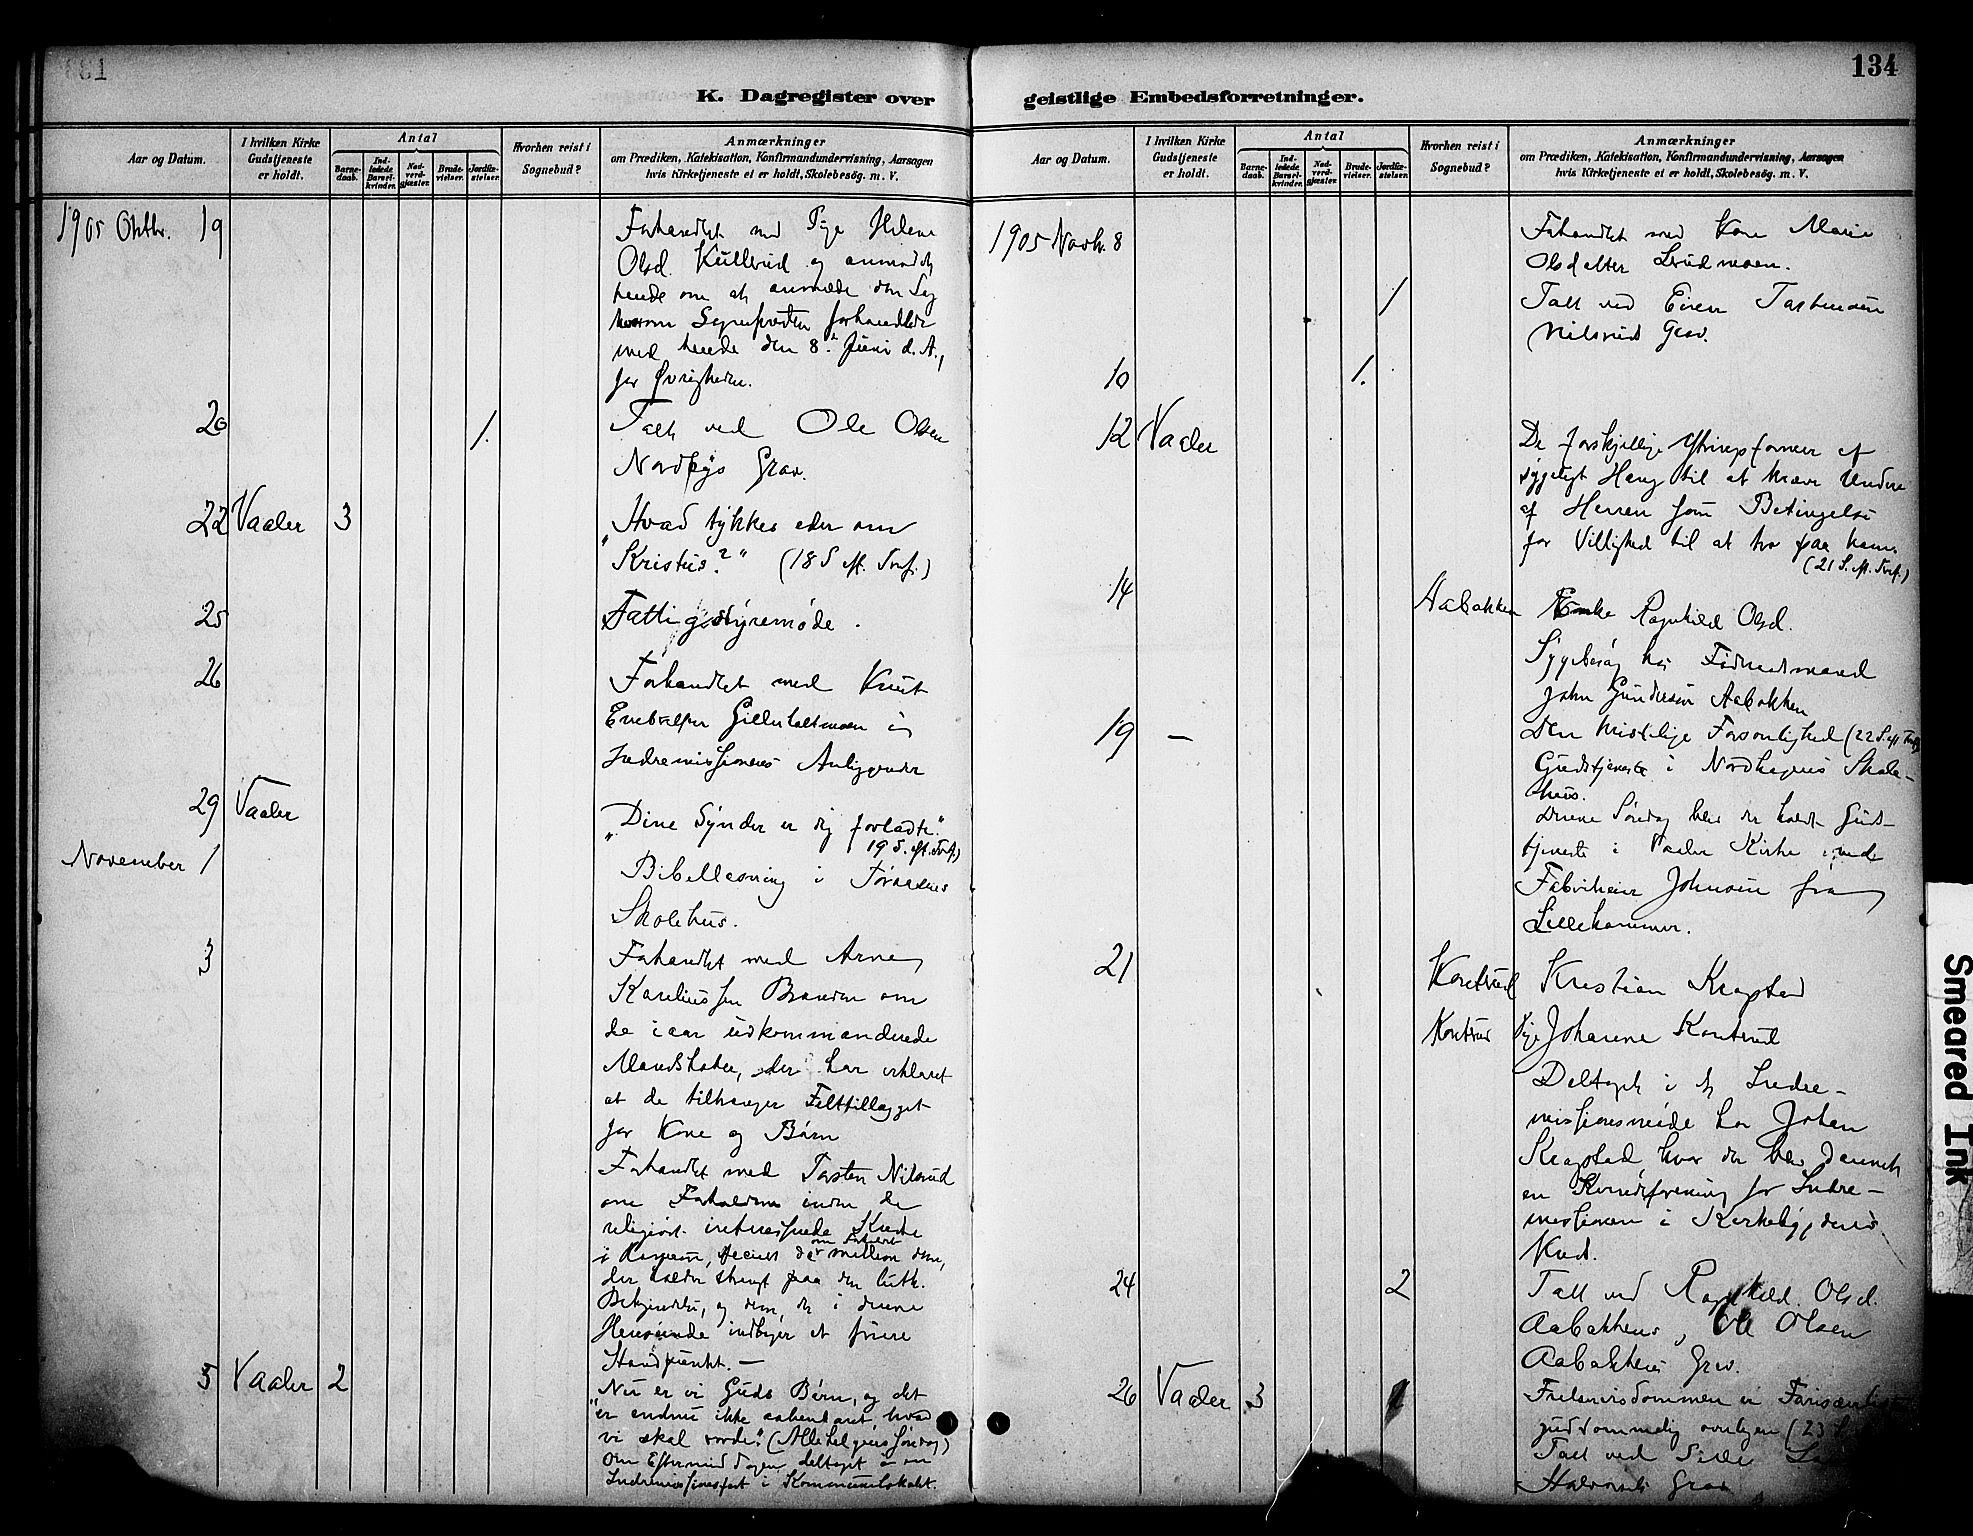 134
K. Dagregister over
geistlige Embedsforretninger.
Aar og Datum.
I hvilken Kirke
Gudstjeneste
er holdt.
Antal
Barne-
daab.
Ind-
ledede
Barsel-
kvinder.
Nad-
verd-
gjæster.
Brude-
vielser.
Jordfæ-
stelser.
Hvorhen reist i
Sognebud?
Anmærkninger
om Prædiken, Katekisation, Konfirmandundervisning, Aarsagen
hvis Kirketjeneste ei er holdt, Skolebesög. m. V.
1905 Oktbr. 19
Forhandlet med Pige Helene
Olsd. Kullerud og anmodet
hende om at anmelde den Sag
hvorom Sognepræsten forhandlede
med hende den 8. Juni d. A.,
for Øvrigheden.
20 1.
Talt ved Ole Olsen
Nordbys Grav.
22 Vaaler 3
"Hvad tykkes eder om
Kristus?" (18 S. eft. Tref.)
25
Fattigstyremøde.
26
Forhandlet med Knut
Gillerholtmoen i
Indremissionens Anliggender
29 Vaaler
"Dine Synder er dig forladte."
19 S. eft. Tref.)
November 1
Bibellæsning i
Skolehus.
3
Forhandlet med Arne
Kareliussen Braaten om
de i aar udkommanderede
Mandskaber, der har erklæret
at de tiltrænger Felttillægget
for Kone og Børn
Forhandlet med Torsten Nilsrud
om Forholdene inden de
religiøst interesserede Kredse
i
der holder strengt paa den luth.
Bekjendelse, og dem, der i denne
Henseende indtager et friere
Standpunkt. —
5 Vaaler 2
"Nu er vi Guds Børn, og det
er endnu ikke aabenbaret, hvad
vi skal vorde." (Allehelgens Søndag)
Om Eftermiddagen deltaget i en
Indremissionsfest i Kommunelokalet.
Aar og Datum.
I hvilken Kirke
Gudstjeneste
er holdt.
Antal
Barne-
daab.
Ind-
ledede
Barsel-
kvinder.
Nad-
verd-
gjæster.
Brude-
vielser.
Jordfæ-
stelser.
Hvorhen reist i
Sognebud?
Anmærkninger
om Prædiken, Katekisation, Konfirmandundervisning, Aarsagen
hvis Kirketjeneste ei er holdt, Skolebesög. m. V.
1905 Novb. 8
Forhandlet med Kone Marie
Olsdatter
1
Talt ved Torstensen
Nilsruds Grav.
10 1.
12 Vaaler
De forskjellige Ytringsformer af
sygeligt Hang til at kræve Undere
af Herren som Betingelse
for Villighed til at tro paa ham.
(21 S. eft. Tref.)
14 Aabakken Enke Ragnhild Olsd.
Sygebesøg hos
John Gundersen Aabakken
19 —
Den kristelige Forsonlighed (22 S. eft. Tref.)
Gudstjeneste i Nordhagens Skole-
hus.
Denne Søndag blev der holdt Guds-
tjeneste i Vaaler Kirke ved
Fabrikeier Johnsen fra
Lillehammer.
21 Kontrud Kristian Kragstad
Kontrud Pige Johanne Kontrud
Deltaget i et Indre-
missionsmøde hos Johan
Kragstad hvor der blev dannet
en Kvindeforening for Indre-
missionen i Kirkebygdens
Kred.
24 2
Talt ved Ragnhild Olsd.
Aabakkens, Ole Olsen
Aabakkens Grav.
26 Vaaler 3 1
guddommelig (23 S.
Talt ved
Grav
Smeared Ink